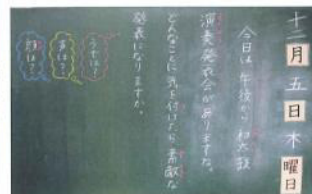 十二月五日木曜日
今日は、午後から和太鼓
演奏発表会がありますね。
どんなことに気を付けたら、素敵な
発表になりますか。
うちは?
声は?
顔は?